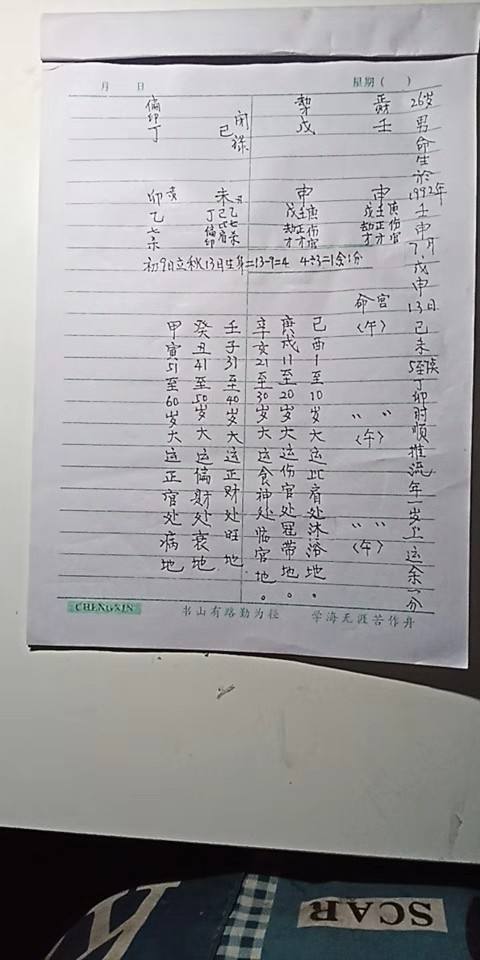 月 日 星期( )
26岁男命生於1992年壬申7月戊申13日己未5至 丁卯时顺推流年一岁上运余一分
壬
戊
己
偏印
丁
申
戊壬庚
劫正伤
才才官
申
戊壬庚
劫正伤
才才官
未
丁己乙
卯
乙
初9日立秋13日生 =13-9=4 4÷3=1余1分
命宫
〈午〉
〃 〃
〈午〉
〃 〃
〈午〉
己酉1至10岁大运比肩处沐浴地。
庚戌11至20岁大运伤官处冠带地。
辛亥21至30岁大运食神处临官地。
壬子31至40岁大运正财处旺地
癸丑41至50岁大运偏财处衰地
甲寅51至60岁大运正官处病地
CHENGXIN 书山有路勤为径 学海无涯苦作舟
SCAR